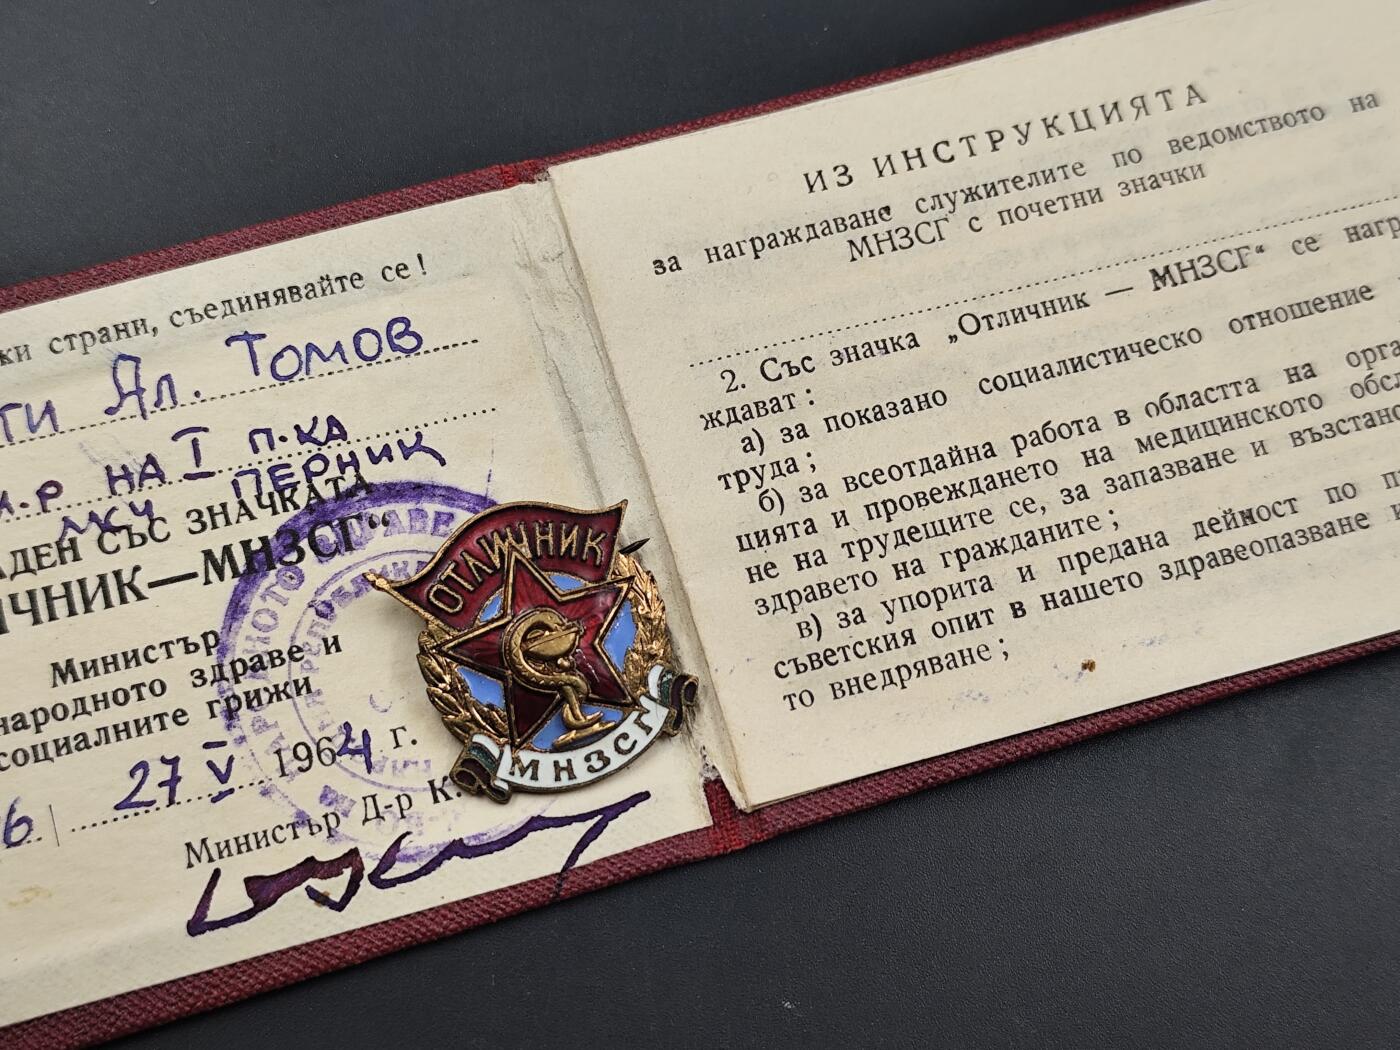 ки страни, съединявайте се!
ти Ал. Томов
м.р на I п-ка
мку Перник
АДЕН СЪС ЗНАЧКАТА
ИЧНИК—МНЗСГ“
Министър
народното здраве и
социалните грижи
6 27 V 1964 г.
Министър Д-р К.
ОТЛИЧНИК
МНЗСГ
ИЗ ИНСТРУКЦИЯТА
за награждаване служителите по ведомството на
МНЗСГ с почетни значки
2. Със значка „Отличник — МНЗСГ“ се награ
ждават :
а) за показано социалистическо отношение
труда ;
б) за всеотдайна работа в областта на орга
цията и провеждането на медицинското обсл
не на трудещите се, за запазване и възстано
здравето на гражданите ;
в) за упорита и предана дейност по п
съветския опит в нашето здравеопазване и
то внедряване ;